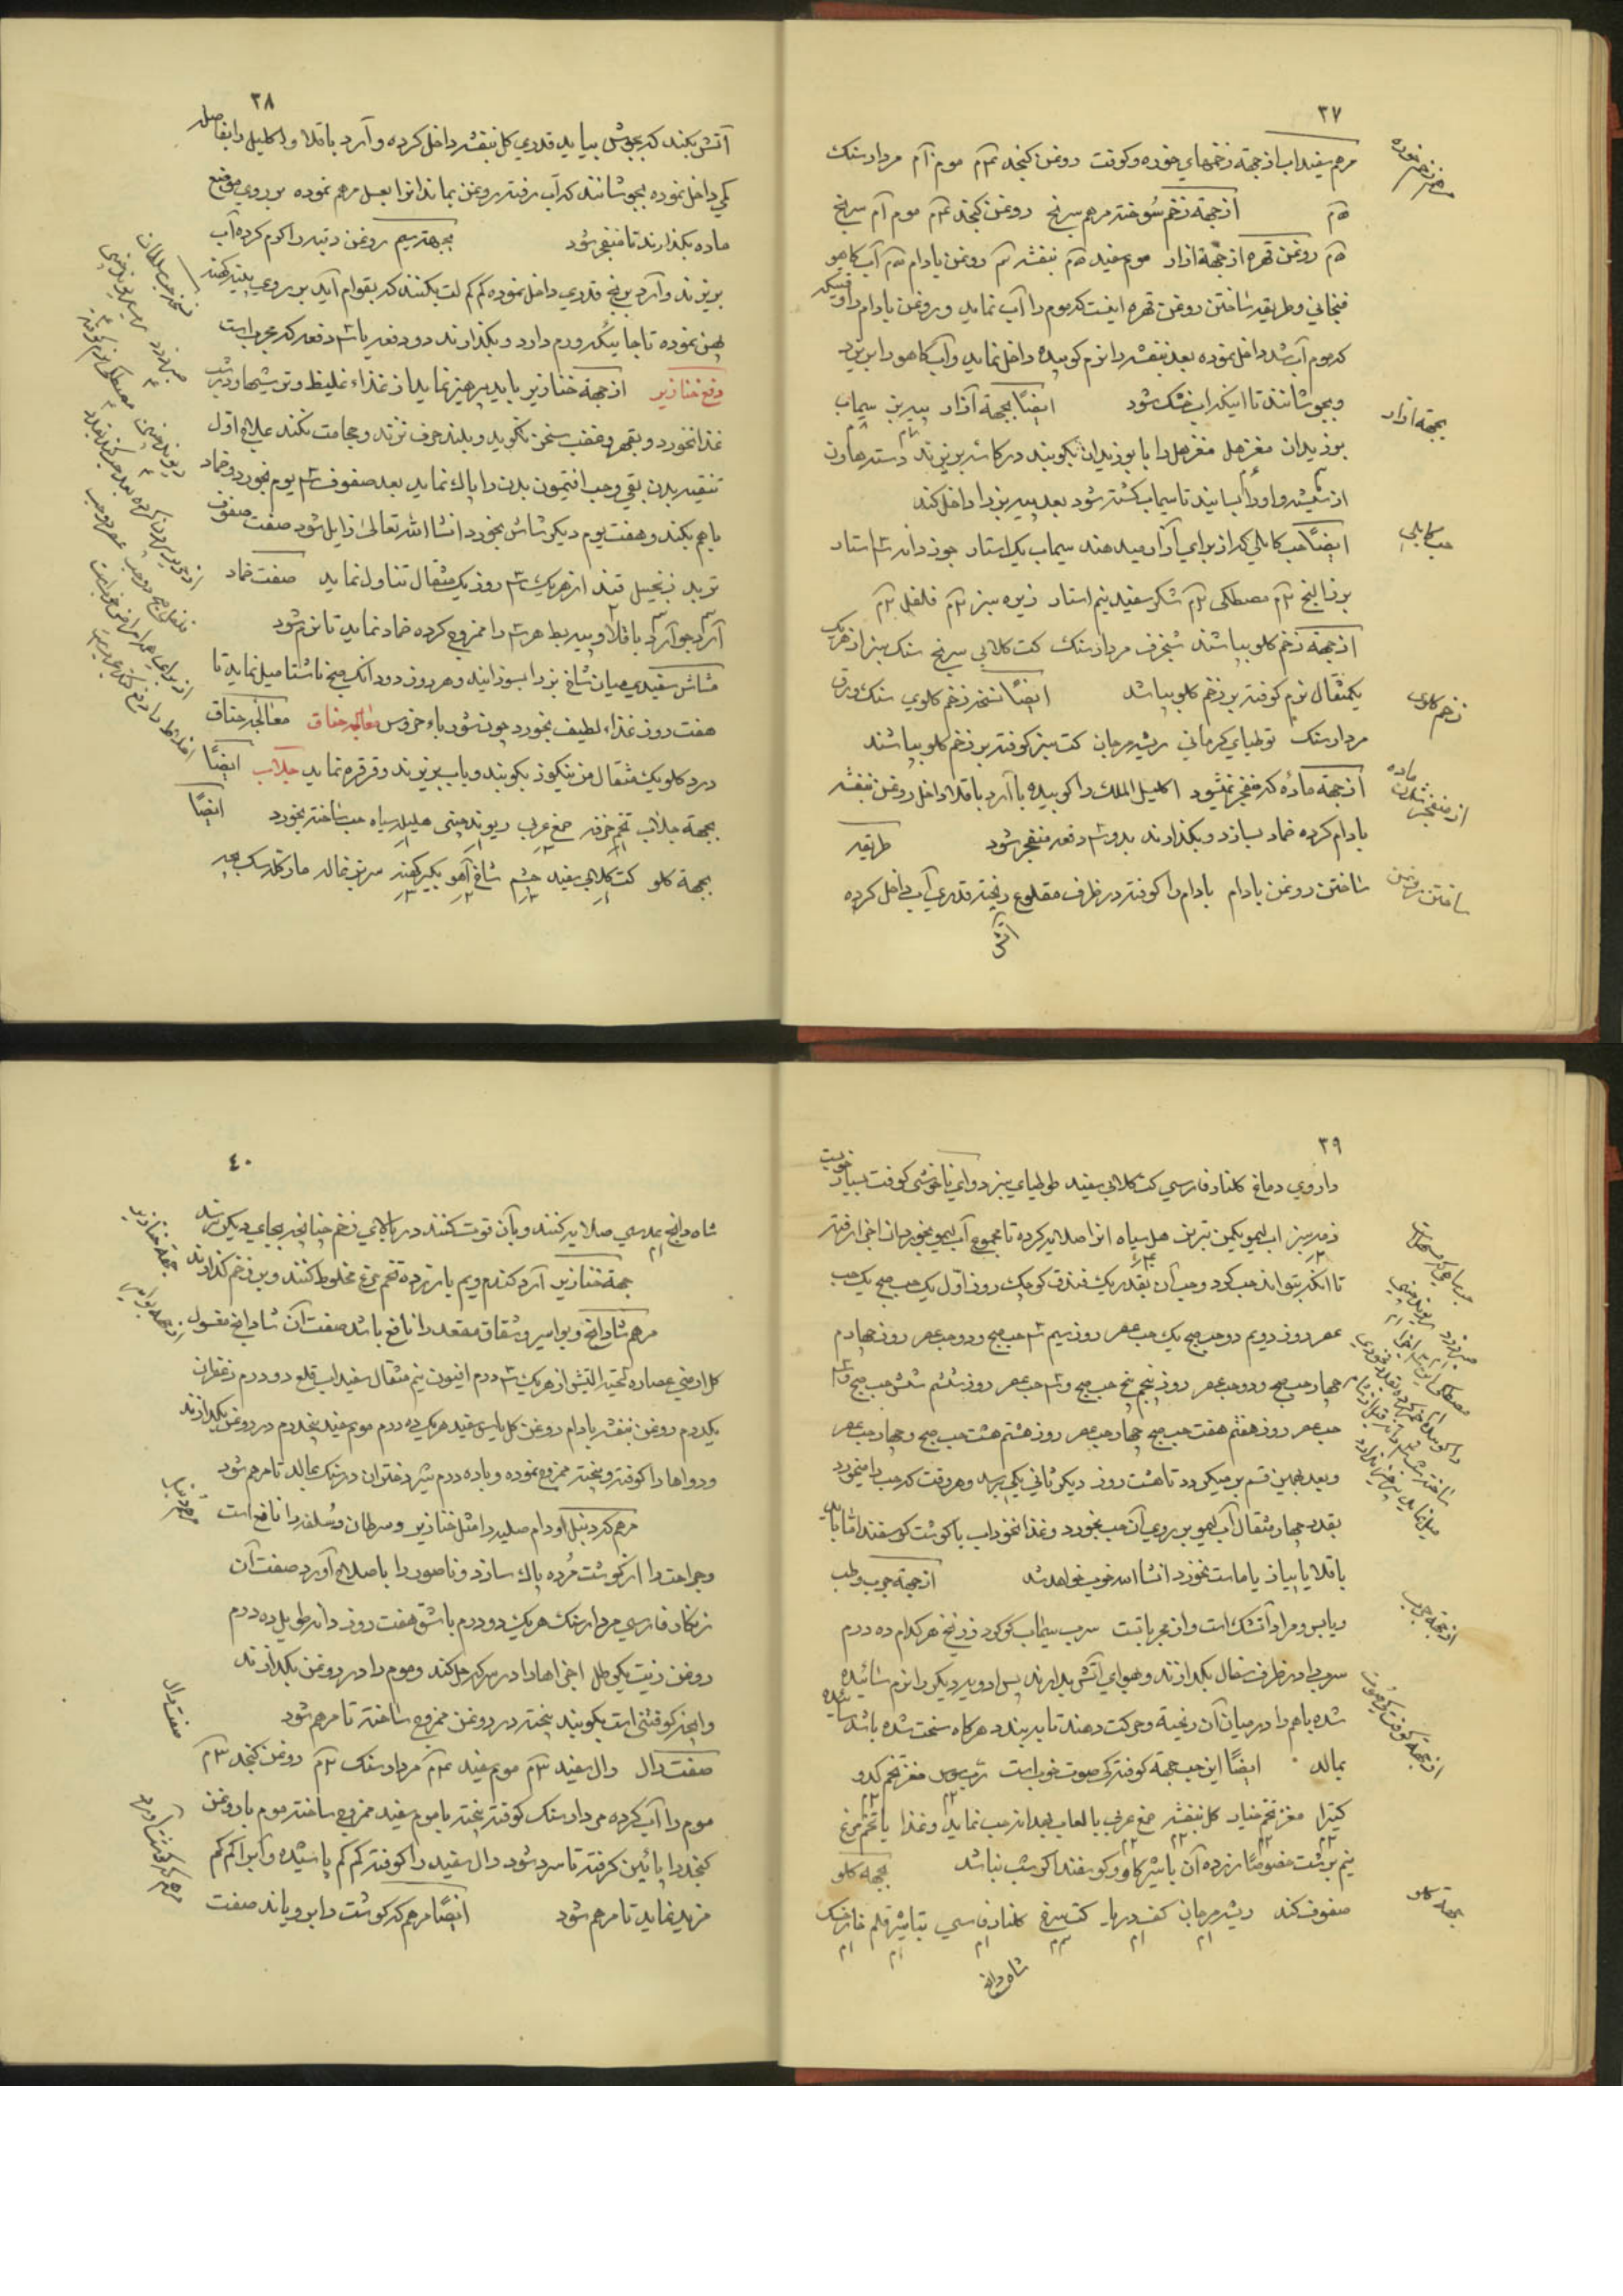 ۳۷
مرهم سفیداب از جهة زخمهای خوره و کوفت روغن کنجد موم مردار سنک
از جهة زخم سوخته مرهم سرنج روغن کنجد موم سرنج
روغن قهره از جهة ازار موم سفید بنفشه روغن بادام آب کاهو
فنجانی و طریقه ساختن روغن قهره اینست که موم را آب نماید و روغن بادام را
که موم آب شد داخل نموده بعد بنفشه را نرم کوبیده داخل نماید و آب کاهو را بریزد
و بجوشانند تا اینکه آب خشک شود ایضًا بجهة آزار پیه بز سیماب
بوزیدان مغز هل مغز هل را با بوزیدان بکوبند در کاسه بریزند دسته هاون
از شیشه و او را بسایند تا سیماب کشته شود بعد پیه بز را داخل کند
ایضًا حب کابلی که از برای آزار میدهند سیماب یک استار جوز دانه استار
بزرالبنج مصطکی شکر سفید نیم استار زیره سبز فلفل
از جهة زخم کلو بپاشند شنجرف مردار سنک کت کلابی سرنج سنک سبز از هر یک
یکمثقال نرم کوفته بر زخم کلو بپاشد ایضًا نسخه زخم کلوی سنک ورق
مردار سنک توطیای کرمانی ریشه مرجان کت سبز کوفته بر زخم کلو بپاشند
از جهة ماده که منفجر نمیشود اکلیل الملک را کوبیده با آرد باقلا داخل روغن بنفشه
بادام کرده ضماد بسازد و بکذارند بدو سه دفعه منفجر شود طریقه
ساختن روغن بادام بادام را کوفته در ظرف مقلوع ریخته قدری آب داخل کرده
آتش
بجهة ازار
حب کابلی
زخم کلوی
از منفجر شدن ماده
ساختن روغن
۳۸
آتش بکند که بجوش بیاید قدری کل بنفشه داخل کرده و آرد باقلا و اکلیل را بفاصله
کمی داخل نموده بجوشانند که آب رفته روغن بماند انرا بعسل مرهم نموده بر روی موضع
ماده بکذارند تا منفجر شود بجهة سیم روغن دنبه را کرم کرده آب
بریزند و آرد برنج قدری داخل نموده کم کم لت بکنند که بقوام آید بر روی پلیته کهنه
پهن نموده تا جائیکه ورم دارد و بکذارند دو دفعه یا سه دفعه که مجربست
دفع خنازیر از جهة خنازیر باید پرهیز نماید از غذاء غلیظ و ترشیها و در شب
غذا نخورد و بقهر و غضب سخن نکوید و بلند حرف نزند و حجامت نکند علاج اول
تنقیه بدن بقی و حب افتیمون بدن را پاک نماید بعد صفوف سه یوم بخورد و ضماد
باهم بکند و هفت یوم دیکر شاش بخورد انشاالله تعالی زایل شود صفت صفوف
تربد زنجبیل قند از هر یک سه روز یکمثقال تناول نماید صفت ضماد
آرد جو آرد باقلا و پیه بط هر سه را ممزوج کرده ضماد نماید تا نرم شود
مشاش سفیدی میان شاخ بز را بسوزانید و هر روز دو دانک صبح ناشتا میل نماید تا
هفت روز غذاء لطیف بخورد چون شوربای خروس معالجه خناق معالجه خناق
درد کلو یکمثقال مر نیکو بکوبند و بآب بریزند و قرقره نماید جلاب ایضًا
بجهة جلاب تخم خرفه صمغ عربی ریوند چینی هلیله سیاه حب ساخته بخورد ایضًا
بجهة کلو کت کلابی سفید شاخ آهو
۳۹
داروی دماغ کلنار فارسی کت کلابی سفید طوطیای سبز دوای ناخوشی کوفت بسیار خوبست
زمد سبز اب لیمو یکمن تبریز هل سیاه انرا صلایه کرده تا مجموع آب لیمو بخورد ان اجزا رفته
تا آنکه بتواند حب کرد و حب آن بقدر یک فندق کوچک روز اول یک حب صبح یک حب
عصر روز دویم دو حب صبح یک حب عصر روز سیم سه حب صبح و دو حب عصر روز چهارم
چهار حب صبح و دو حب عصر روز پنجم پنج حب صبح و سه حب عصر روز ششم شش حب صبح و سه
حب عصر روز هفتم هفت حب صبح چهار حب عصر روز هشتم هشت حب صبح و چهار حب عصر
و بعد بهمین قسم برمیکردد تا هشت روز دیکر ثانی یکی برسد و هر وقت که حب را میخورد
بقدر چهار مثقال آب لیمو بر روی آن حب بخورد و غذا نخوداب با کوشت کوسفند اما باید
باقلا یا پیاز یا ماست نخورد انشاالله خوب خواهد شد از جهة جرب رطب
و یابس و مراد آتشک است و از مجرباتست سرب سیماب کوکرد زرنیخ هر کدام ده درم
سرب را در ظرف سفال بکدازند و بهوای آتش بدارند پس ادویه دیکر را نرم سائیده
شده باهم را در میان آن ریخته و حرکت دهند تا به بندد هر کاه سخت شده باشد سائیده
بمالد ایضًا این حب جهة کوفتکی صوت خوبست رب سوس مغز تخم کدو
کتیرا مغز تخم خیار کل بنفشه صمغ عربی با لعاب بهدانه حب نماید و غذا با تخم مرغ
نیم برشت خصوصًا زرده آن با شیر کاو و کوسفند اکر شب نباشد بجهة کلو
صفوف کند ریشه مرجان کف دریا کت سرخ کلنار فارسی تباشیر قلم خار خسک
شاه دانه
از جهة جرب
از جهة کوفتکی صوت
بجهة کلو
۴۰
شاه دانج عدسی صلایه کنند و بآن قوت کنند در بالای زخم چنانچه بجای دیکر نرسد
جهة خنازیر آرد کندم و یم با زرده تخم مرغ مخلوط کنند و بر زخم کذارند
مرهم شادانج و بواسیر و شقاق مقعد را نافع باشد صفت آن شادانج مغسول
کل ارمنی عصاره لحیة التیس از هر یک سه درم افیون نیم مثقال سفیداب قلع دو درم زعفران
یکدرم روغن بنفشه بادام روغن کل یاس سفید هر یک ده درم موم سفید پنجدرم در روغن بکدازند
و دواها را کوفته و بیخته ممزوج نموده و با ده درم شیر دختران در سنک بمالد تا مرهم شود
مرهم که دنبل اورام صلبه را مثل خنازیر و سرطان و سلعه را نافع است
و جراحت را از کوشت مرده پاک سازد و ناصور را با صلاح آورد صفت آن
زنکار فارسی مردار سنک هر یک دو درم باشق هفت روز دانه طویل ده درم
روغن زیت یکرطل اجزاها را در سرکه حل کند و موم را در روغن بکدازند
و انچه کوفتنی است بکوبند بیخته در روغن ممزوج ساخته تا مرهم شود
صفت دال دال سفید موم سفید مردار سنک روغن کنجد
موم را آب کرده مردار سنک کوفته بیخته با موم سفید ممزوج ساخته موم با روغن
کنجد را پائین کرفته تا سرد شود دال سفید را کوفته کم کم پاشیده و آنرا کم کم
مزید نماید تا مرهم شود ایضًا مرهم که کوشت را برویاند صفت
جهة خنازیر
از جهة بواسیر
مرهم دنبل
صفت دال